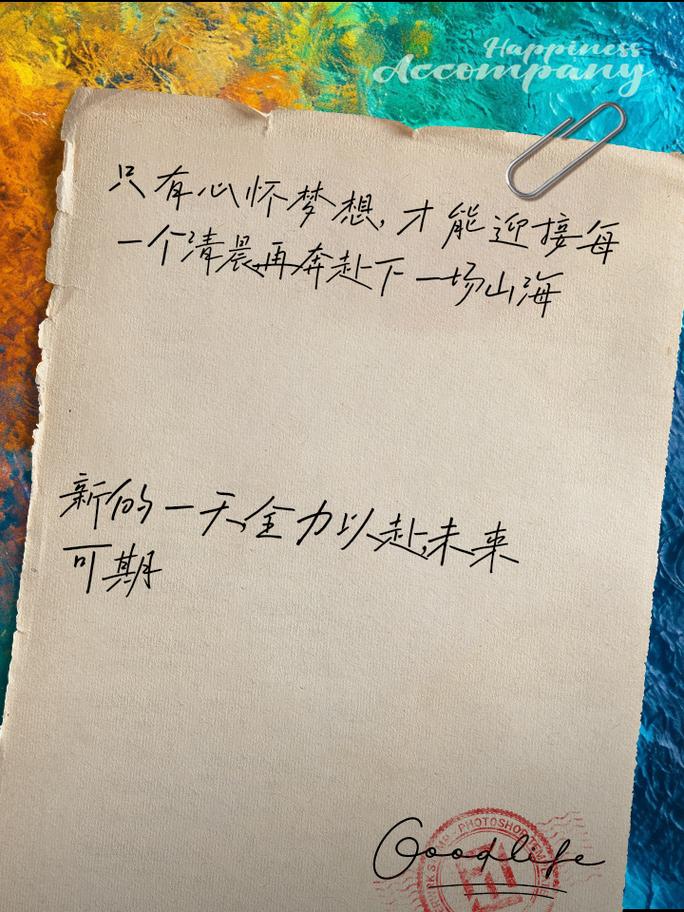 Happiness
Accompany
只有心怀梦想,才能迎接每
一个清晨,再奔赴下一场山海
新的一天,全力以赴,未来
可期
PHOTOSHOP
Goodlife